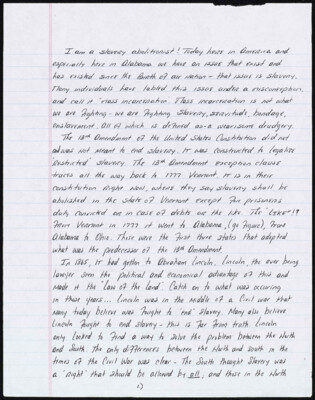 I am a slavery abolitionist! Today here in America and
especially here in Alabama we have an issue that exist and
has existed since the Birth of our Nation - that issue is slavery.
Many individuals have labled this issue under a misconception,
and call it "mass incarceration". Mass incarceration is not what
we are fighting - we are fighting Slavery, servitude, bondage,
enslavement. All of which is defined as a wearisome drudgery.
The 13th Amendment of the United States Constitution did not
was not meant to end slavery. It was constructed to legalize
Restricted Slavery. The 13th Amendment exception clause
traces all the way back to 1777 Vermont. It is in their
constitution Right Now, where they say slavery shall be
abolished in the state of Vermont except for prisoners
duly convicted or in case of debts or the like. The "Like"!?
From Vermont in 1777 it went to Alabama, (go figure), From
Alabama to Ohio. Those were the first three states that adopted
what was the predecessor of the 13th Amendment.
In 1865, it had gotten to Abraham Lincoln. Lincoln, the ever being
lawyer seen the political and economical advantage of this and
made it the "law of the land". Catch on to what was occuring
in those years... Lincoln was in the middle of a Civil War that
Many today believe was fought to "end" slavery. Many also believe
Lincoln fought to end slavery - this is far from truth. Lincoln
only looked to find a way to solve the problem between the North
and South. The only differences between the North and South in the
times of the Civil War was clear - The South thought Slavery was
a "right" that should be allowed by all, and those in the North
1)